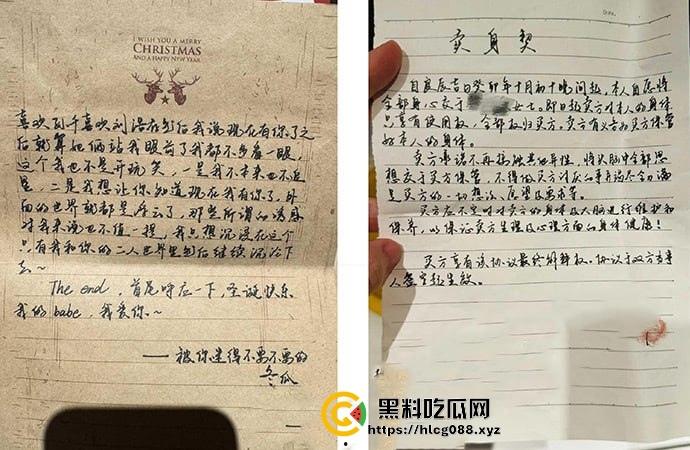 I WISH YOU A MERRY
CHRISTMAS
AND A HAPPY NEW YEAR
喜欢瓦千喜欢刘浩存到后我说现在有你了之
后就算她俩站我眼前了我都不多看一眼,
这个我也不是开玩笑,一是我不本来也不近
是,二是我想让你知道现在我有你了,外
面的世界就都是浮云了,那些所谓的诱惑
对我来说也不值一提,我只想沉浸在这个
只有我和你的二人世界里然后继续沉沦下
去~
The end,首尾呼应一下,圣诞快乐
我的babe,我爱你~
——被你迷得不要不要的
冬瓜
卖身契
自良辰吉日癸卯年十月初十晚间起,本人自愿将
全部身心交于 女士。即日起卖方对本人的身体
只享有使用权,全部权归买方。卖方有义务为买方保管
好本人的身体。
卖方承诺不再接触其他异性,将大脑中全部思
想交于买方保管,不得做买方讨厌的事并竭尽全力满
足买方的一切想法、愿望及要求等。
买方应不定时对卖方的身体及大脑进行维护和
保养,以保证卖方生理及心理方面的身体健康!
买方享有该协议最终解释权。协议于双方当事
人签字起生效。
黑料吃瓜网
https://hlcg088.xyz